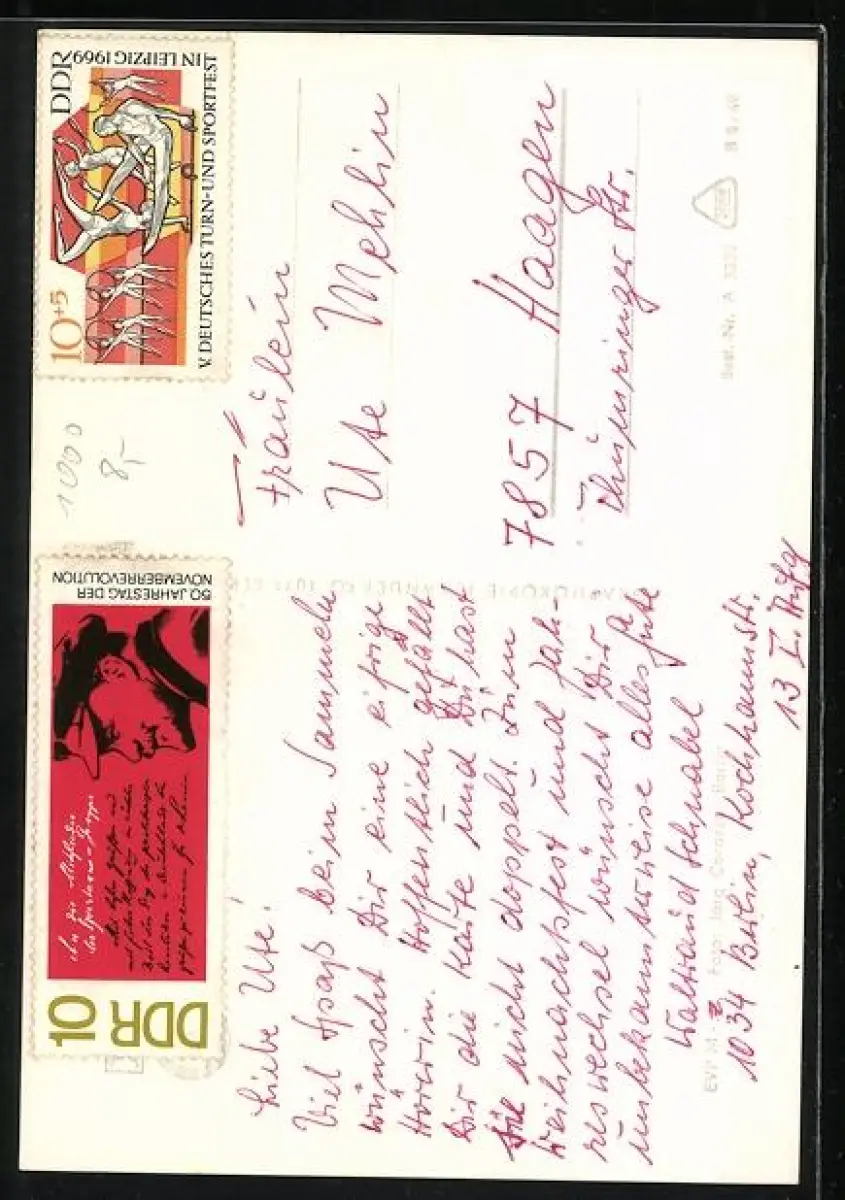 Liebe Ute!
Viel Spaß beim Sammeln
wünscht Dir eine eifrige
Hörerin. Hoffentlich gefällt
Dir die Karte und Du hast
sie nicht doppelt. Zum
Weihnachtsfest und Jah-
reswechsel wünscht Dir
unbekannterweise alles Gute
Waltraud Schnabel
1034 Berlin, Kochhannstr.
13
Fräulein
Ute Mehlin
7857 Haagen
Thüringer Str.
10
DDR
50. JAHRESTAG DER
NOVEMBERREVOLUTION
10+5
DDR
V. DEUTSCHES TURN- UND SPORTFEST
IN LEIPZIG 1969
1000
8,-
Best.-Nr. A
Foto: